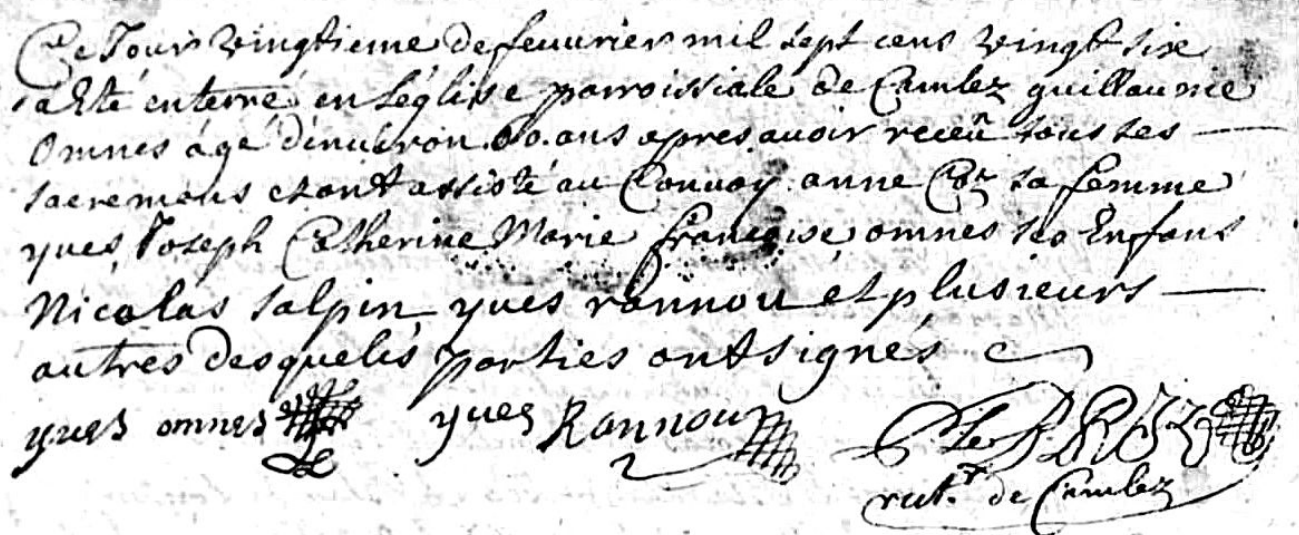 Ce Jour vingtieme de feuurier mil sept cens vingt six
a Eté enterré en l'eglise parroissiale de Camlez guillaume
omnes agé d'enuiron 60 ans apres auoir receu tous ses
sacremens et ont assisté au Conuoy anne sa femme
yues Joseph Catherine Marie françoise omnes ses Enfans
Nicolas salpin yues rannou et plusieurs
autres desquels parties ont signés
yues omnes yues Rannou
rect.r de Camlez